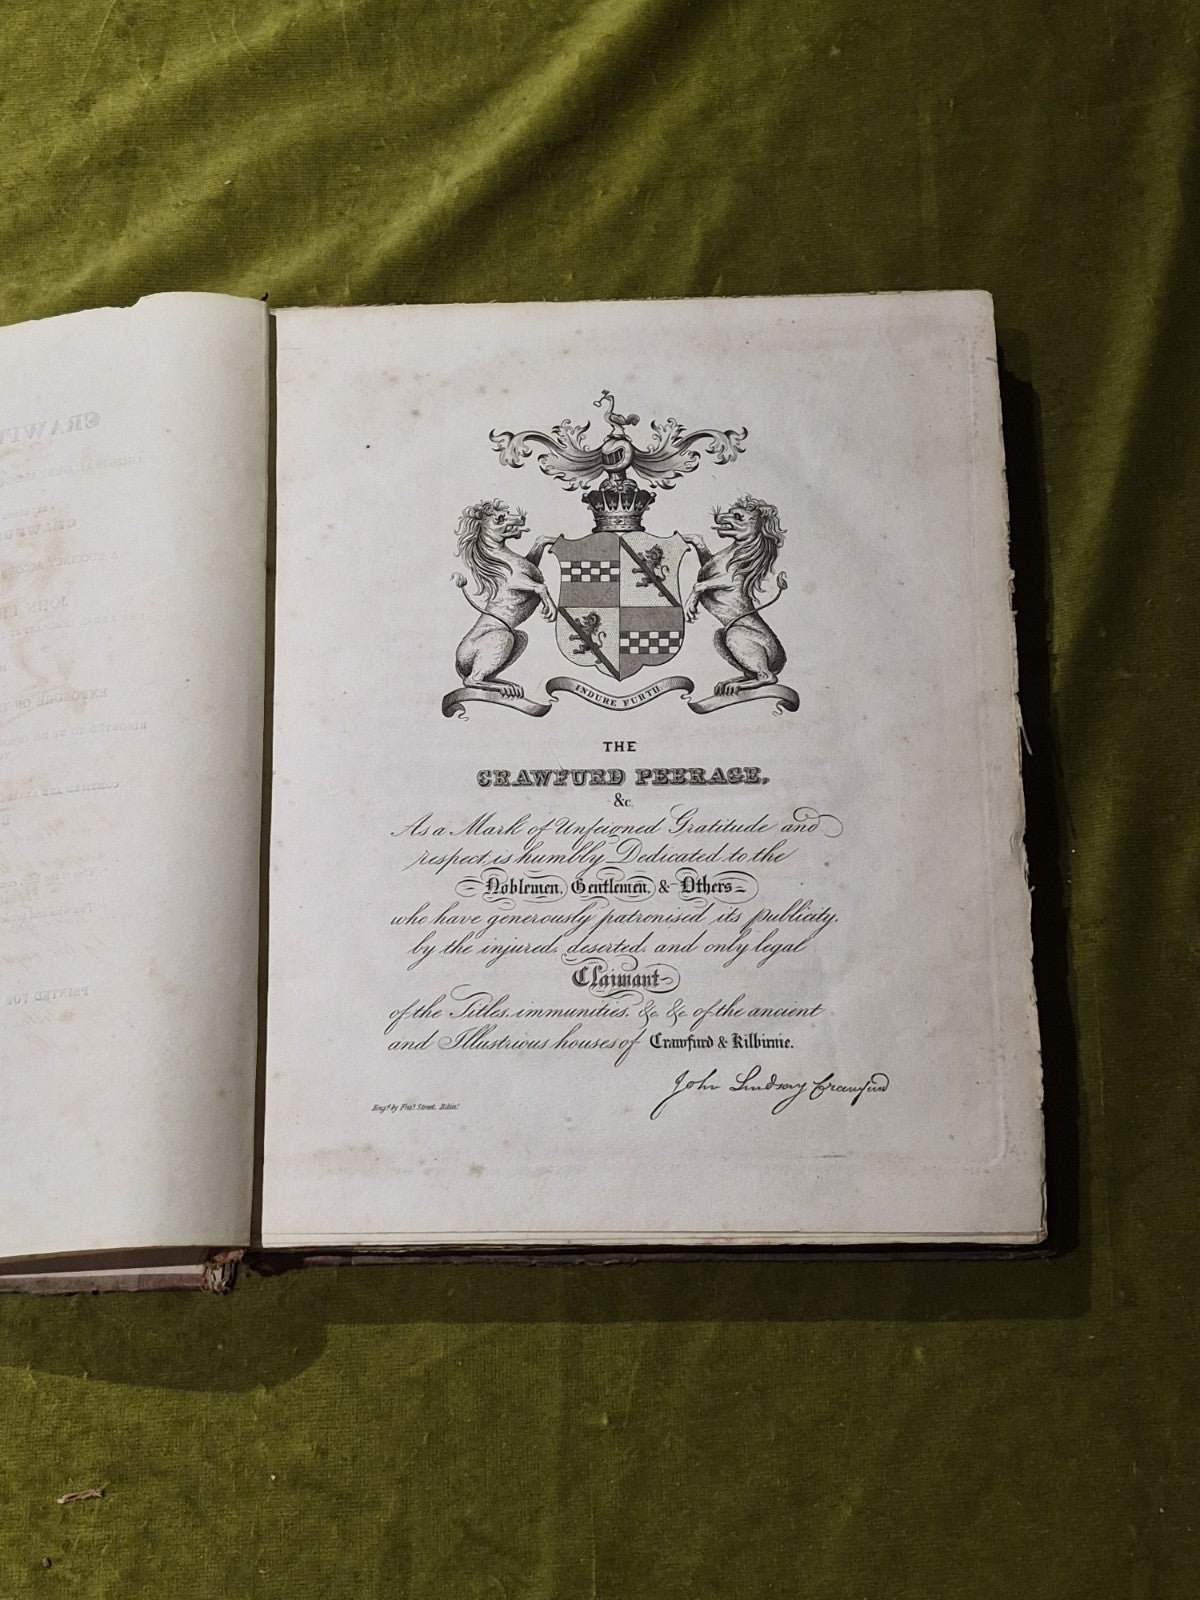 INDURE FURTH
THE
CRAWFURD PEERAGE,
&c.
As a Mark of Unfeigned Gratitude and
respect, is humbly Dedicated to the
Noblemen, Gentlemen, & Others
who have generously patronised its publicity,
by the injured, deserted, and only legal
Claimant
of the Titles, immunities, &c. &c. of the ancient
and Illustrious houses of Crawfurd & Kilbirnie.
John Lindsay Crawfurd
Engd. by Fras. Street. Edinr.